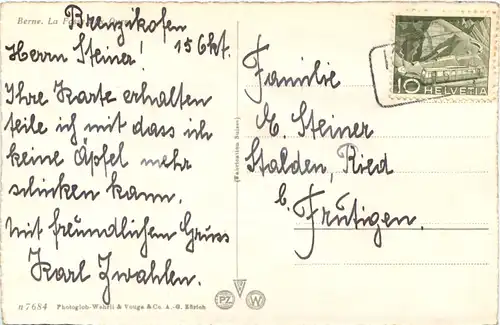 Berne. La
Brenzikofen
15 Okt.
Herrn Steiner!
Ihre Karte erhalten
teile ich mit dass ich
keine Äpfel mehr
schicken kann.
Mit freundlichem Gruss
Karl Zwahlen.
n 7684 Photoglob-Wehrli & Vouga & Co. A.-G. Zürich
PZ
W
10 HELVETIA
Familie
E. Steiner
Stalden, Ried
b. Frutigen.